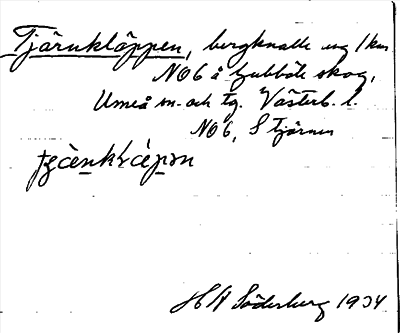 Tjärnkläppen, bergknalle ung 1 km
NO6 å Gubböle skog,
Umeå sn. och tg. Västerb. l.
NO6, S Tjärnen
H A Söderberg 1934